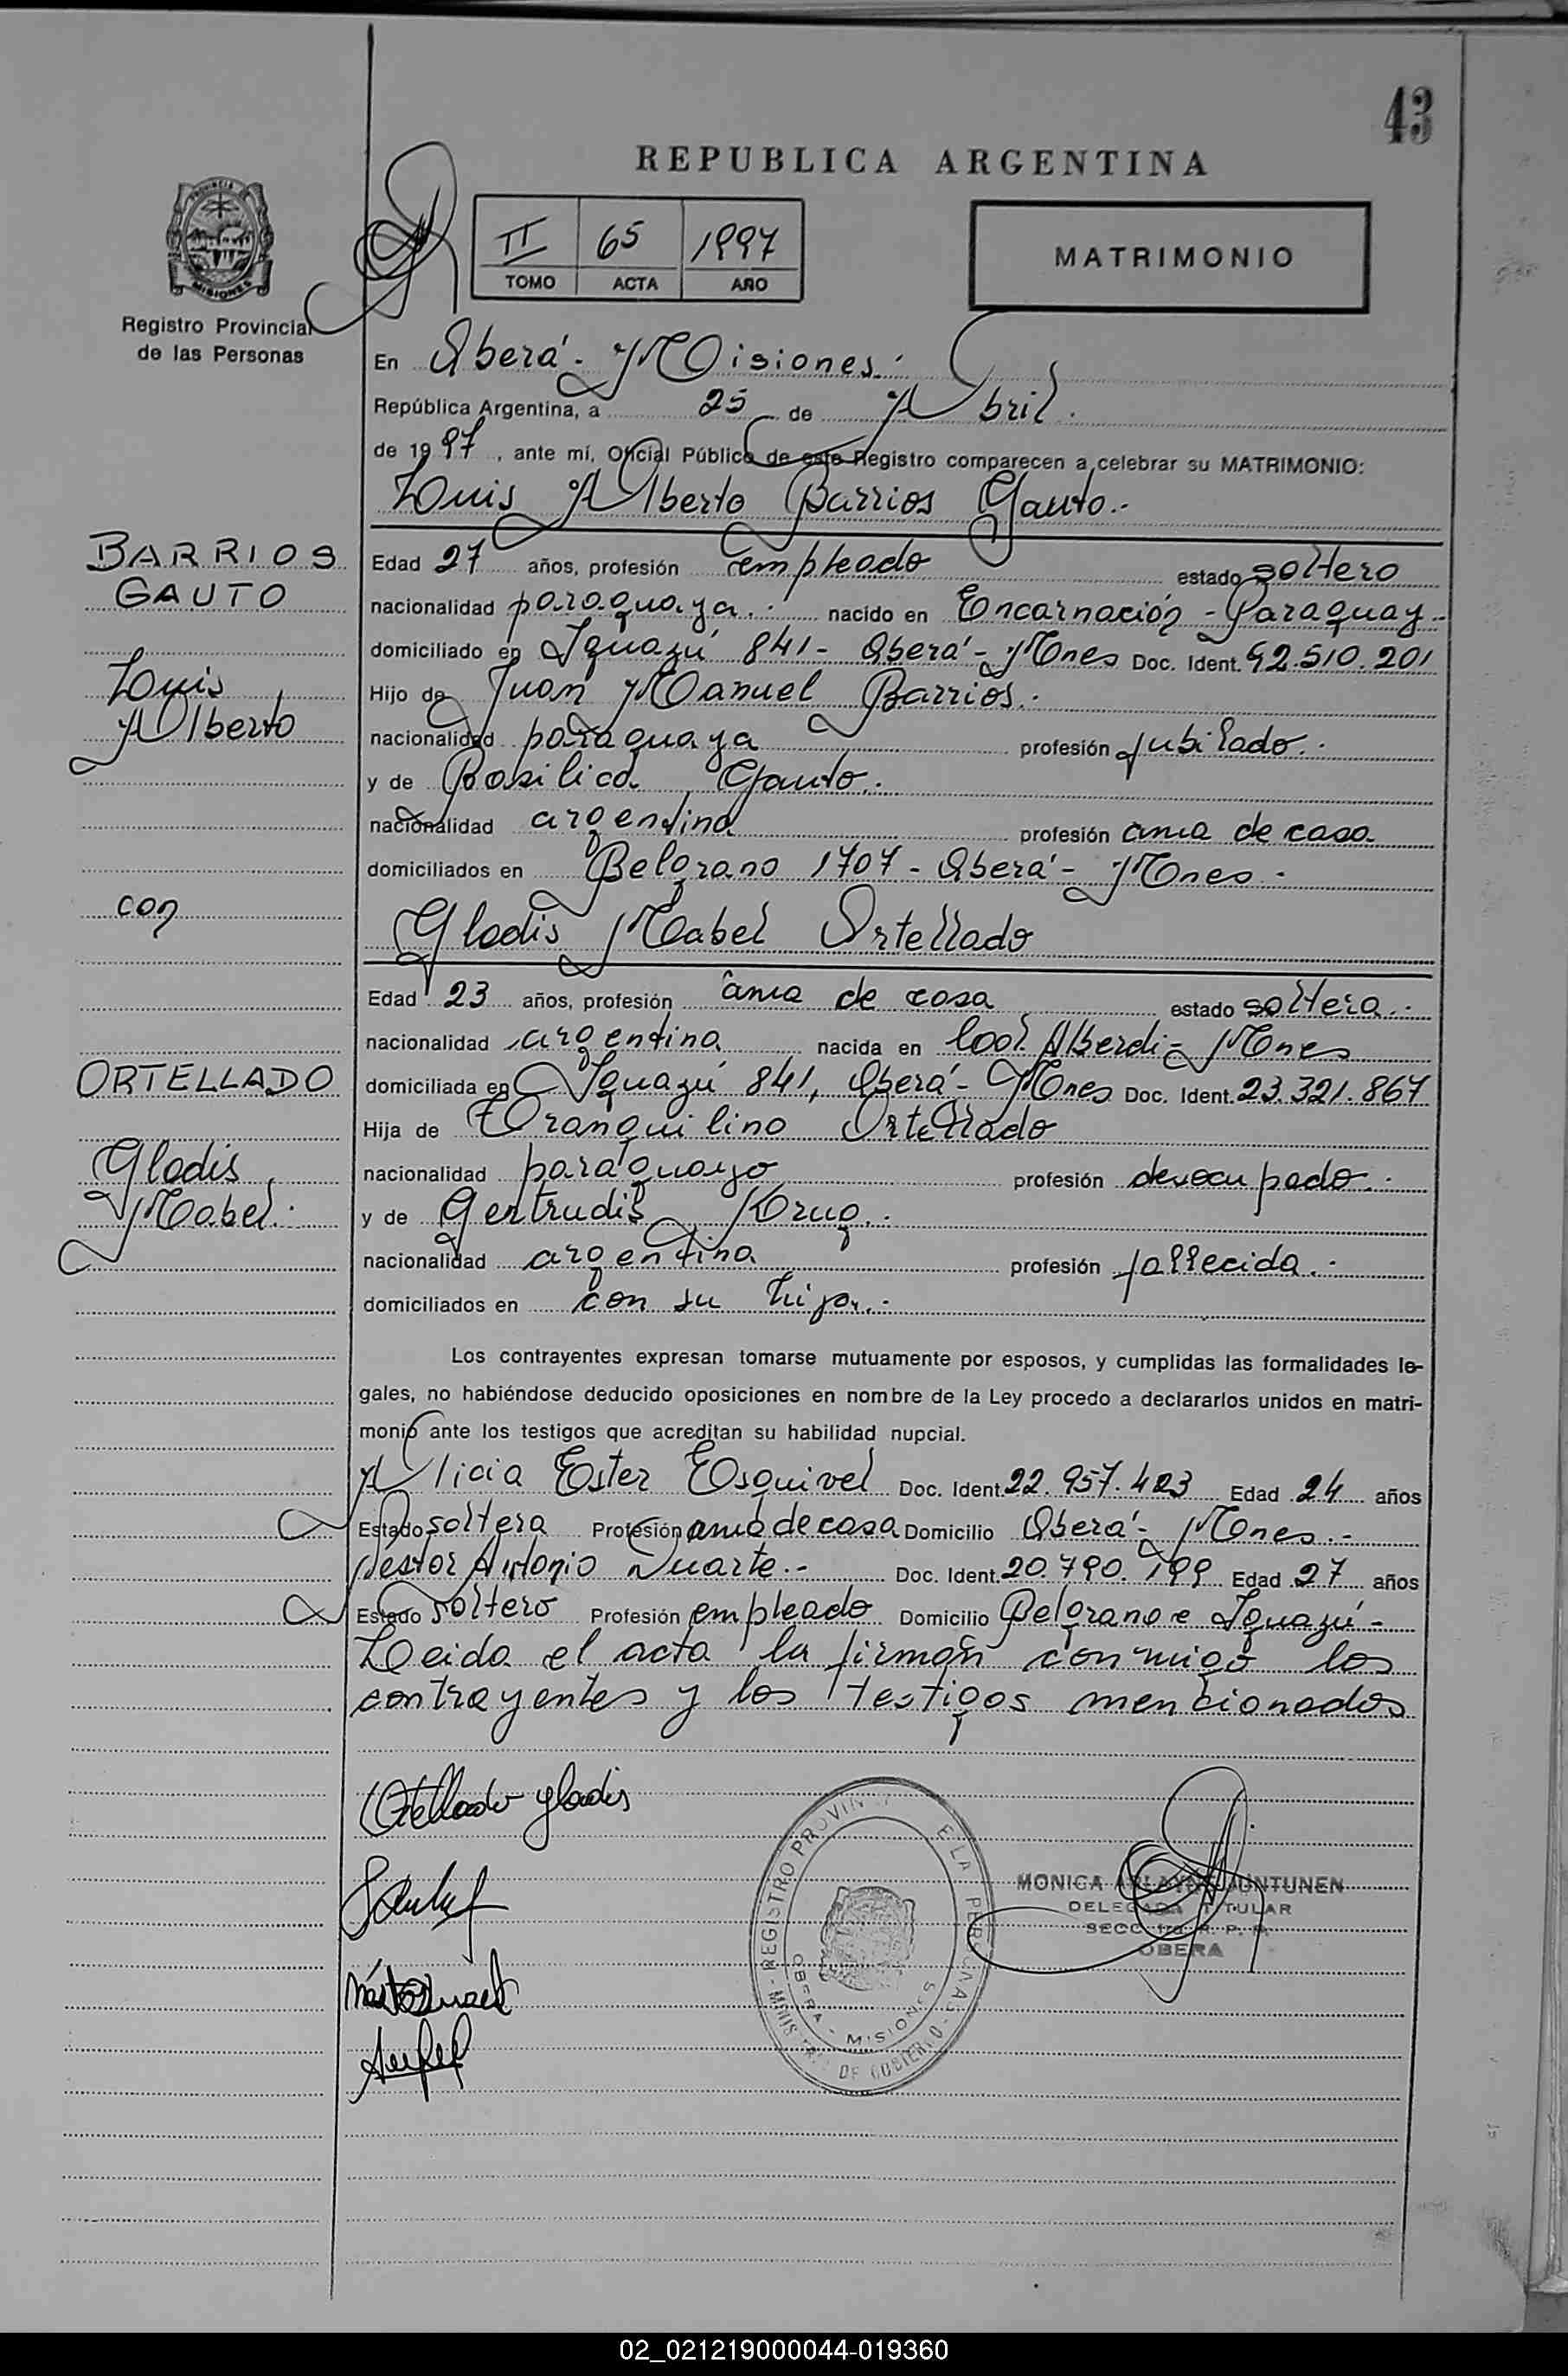 43
REPUBLICA ARGENTINA
PROVINCIA DE
MISIONES
Registro Provincial
de las Personas
II 65 1997
TOMO ACTA AÑO
MATRIMONIO
En Oberá - Misiones.-
República Argentina, a 25 de Abril.
de 1997, ante mí, Oficial Público de este Registro comparecen a celebrar su MATRIMONIO:
Luis Alberto Barrios Gauto.-
BARRIOS
GAUTO
Luis
Alberto
Edad 27 años, profesión empleado estado soltero
nacionalidad paraguaya.- nacido en Encarnación - Paraguay -
domiciliado en Iguazú 841 - Oberá - Mnes Doc. Ident. 92.510.201
Hijo de Juan Manuel Barrios.-
nacionalidad paraguaya profesión jubilado.-
y de Basilica Gauto.-
nacionalidad argentina profesión ama de casa
domiciliados en Belgrano 1707 - Oberá - Mnes -
con
Gladis Mabel Ortellado
Edad 23 años, profesión ama de casa estado soltera.-
nacionalidad argentina nacida en Col. Alberdi - Mnes
ORTELLADO
Gladis
Mabel.-
domiciliada en Iguazú 841, Oberá - Mnes Doc. Ident. 23.321.867
Hija de Tranquilino Ortellado
nacionalidad paraguayo profesión desocupado.-
y de Gertrudis Krug.-
nacionalidad argentina profesión fallecida.-
domiciliados en con su hija.-
Los contrayentes expresan tomarse mutuamente por esposos, y cumplidas las formalidades le-
gales, no habiéndose deducido oposiciones en nombre de la Ley procedo a declararlos unidos en matri-
monio ante los testigos que acreditan su habilidad nupcial.
Alicia Ester Esquivel Doc. Ident. 22.957.423 Edad 24 años
Estado soltera Profesión ama de casa Domicilio Oberá - Mnes.-
Néstor Antonio Duarte.- Doc. Ident. 20.790.199 Edad 27 años
Estado soltero Profesión empleado Domicilio Belgrano e Iguazú -
Leida el acta la firman conmigo los
contrayentes y los testigos mencionados
Ortellado Gladis
REGISTRO PROVIN E LA PERSONAS - MINISTERIO DE GOBIERNO
OBERA - MISIONES
MONICA ARLAYNE JUNTUNEN
DELEGADA TITULAR
SECC. 1ra. R. P. P.
OBERA
02_021219000044-019360